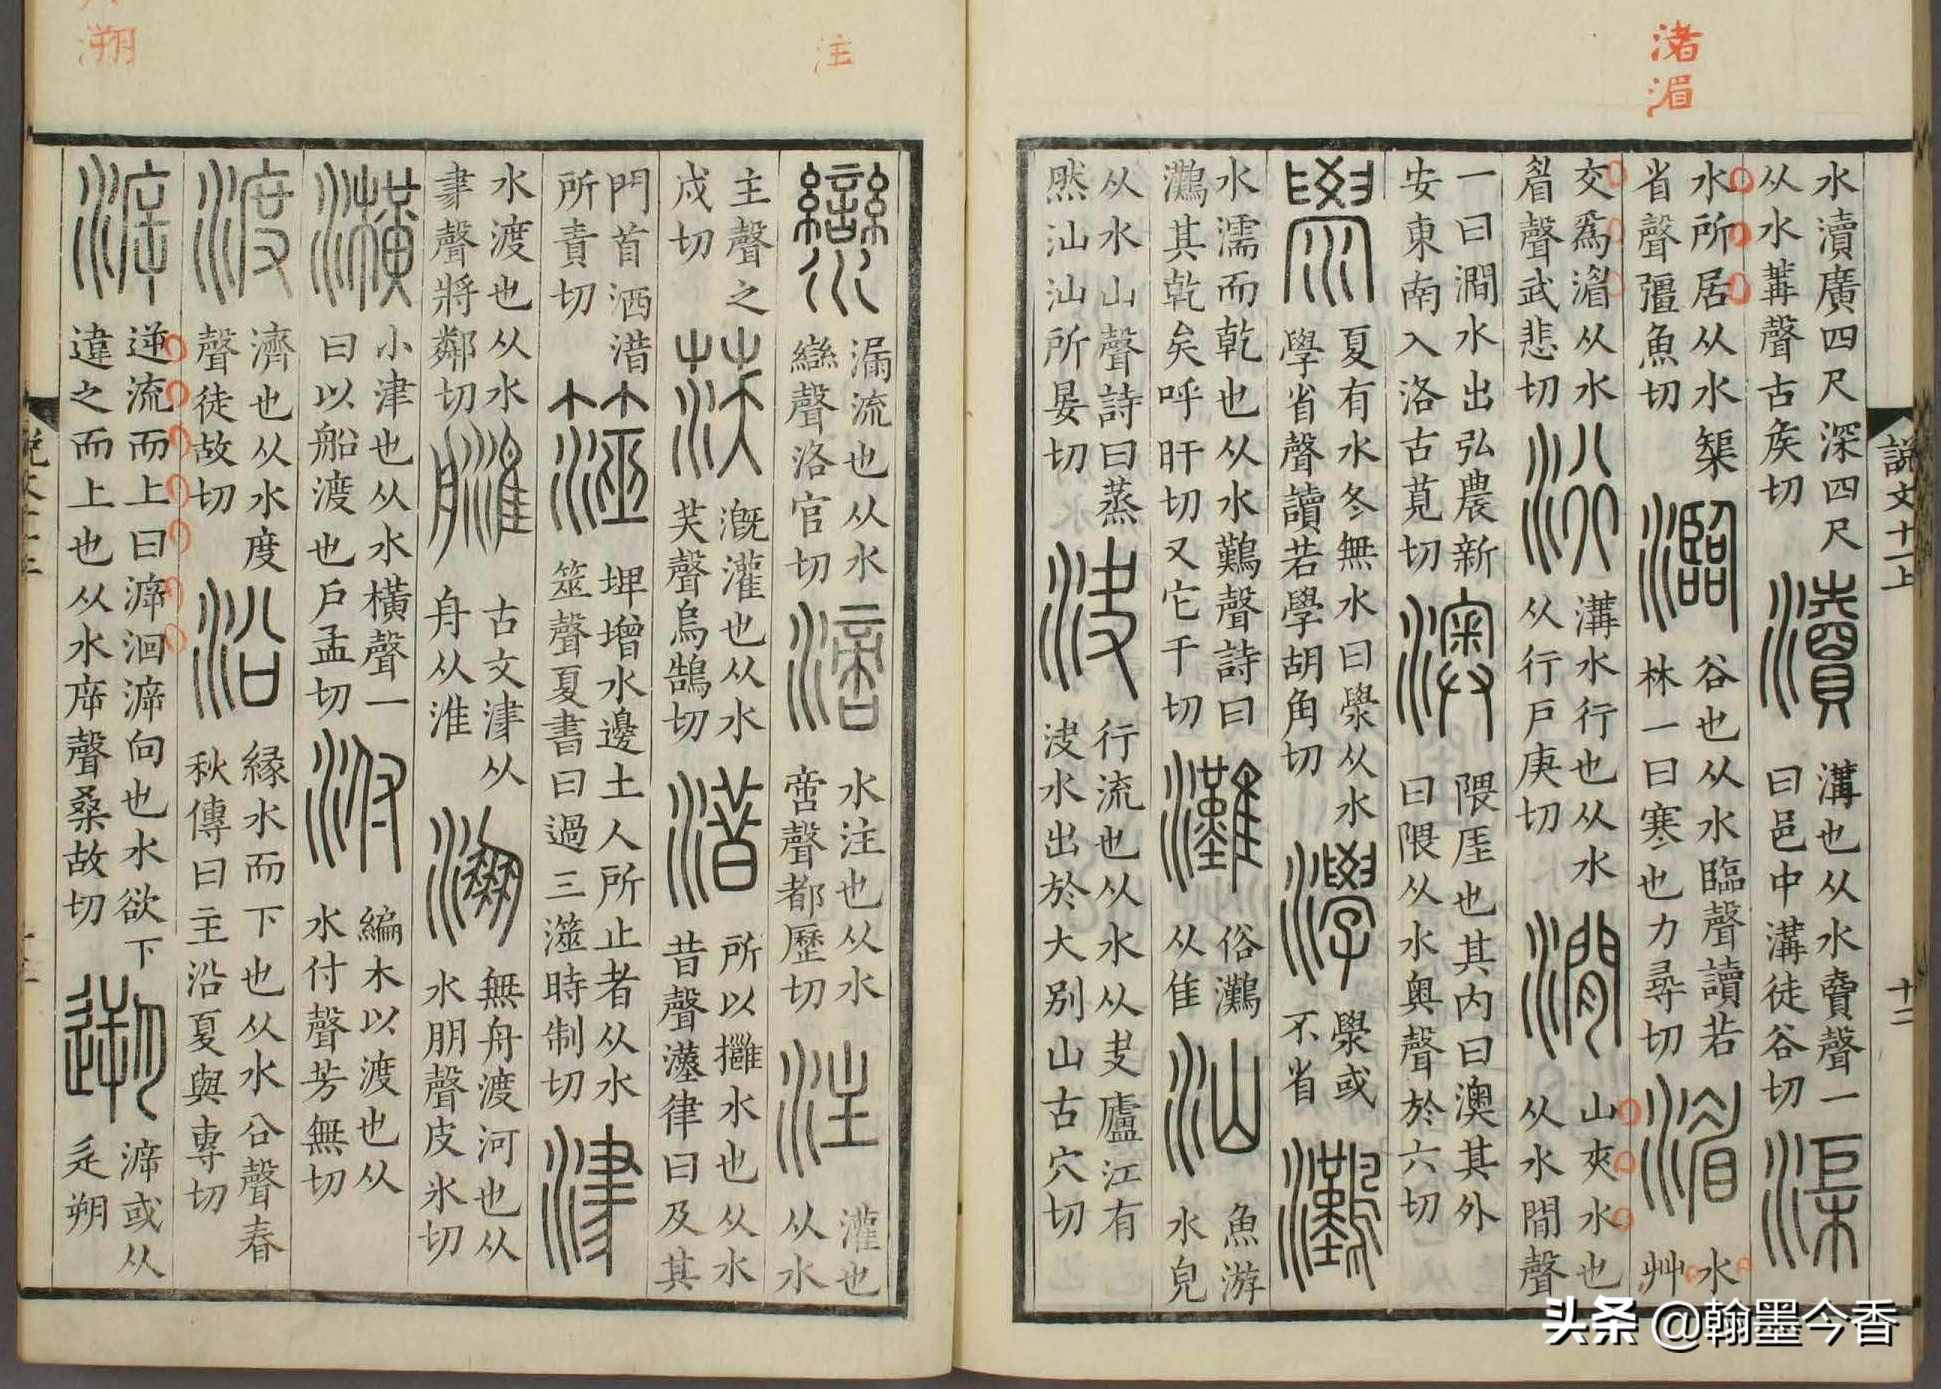 水瀆廣四尺深四尺从水冓聲古矦切瀆溝也从水𧶠聲一曰邑中溝徒谷切渠
水所居从水榘省聲彊魚切瀶谷也从水臨聲讀若林一曰寒也力尋切湄水艸
交爲湄从水睂聲武悲切洐溝水行也从水从行戶庚切澗山夾水也从水閒聲
一曰澗水出弘農新安東南入洛古莧切澳隈厓也其内曰澳其外曰隈从水奥聲於六切
澩夏有水冬無水曰澩从水學省聲讀若學胡角切澩或不省灘
水濡而乾也从水鸛聲詩曰灘其乾矣呼旰切又它干切灘俗灘从隹汕魚游水皃
从水山聲詩曰蒸然汕汕所晏切決行流也从水从夬廬江有決水出於大别山古穴切
灓漏流也从水䜌聲洛官切滴水注也从水啻聲都歷切注灌也从水
主聲之戍切漑灌也从水芺聲烏鵠切㳻所以攡水也从水昔聲漢律曰及其
門首洒浩所責切澨埤增水邊土人所止者从水筮聲夏書曰過三澨時制切津
水渡也从水𦘔聲將鄰切古文津从舟从淮淜無舟渡河也从水朋聲皮冰切
橫小津也从水橫聲一曰以船渡也戶孟切泭編木以渡也从水付聲芳無切
渡濟也从水度聲徒故切沿緣水而下也从水㕣聲春秋傳曰王沿夏與專切
㴑逆流而上曰㴑洄㴑向也水欲下違之而上也从水㡿聲桑故切遡㴑或从辵朔
説文十一上
十二
渚湄
注
頭条 @翰墨今香